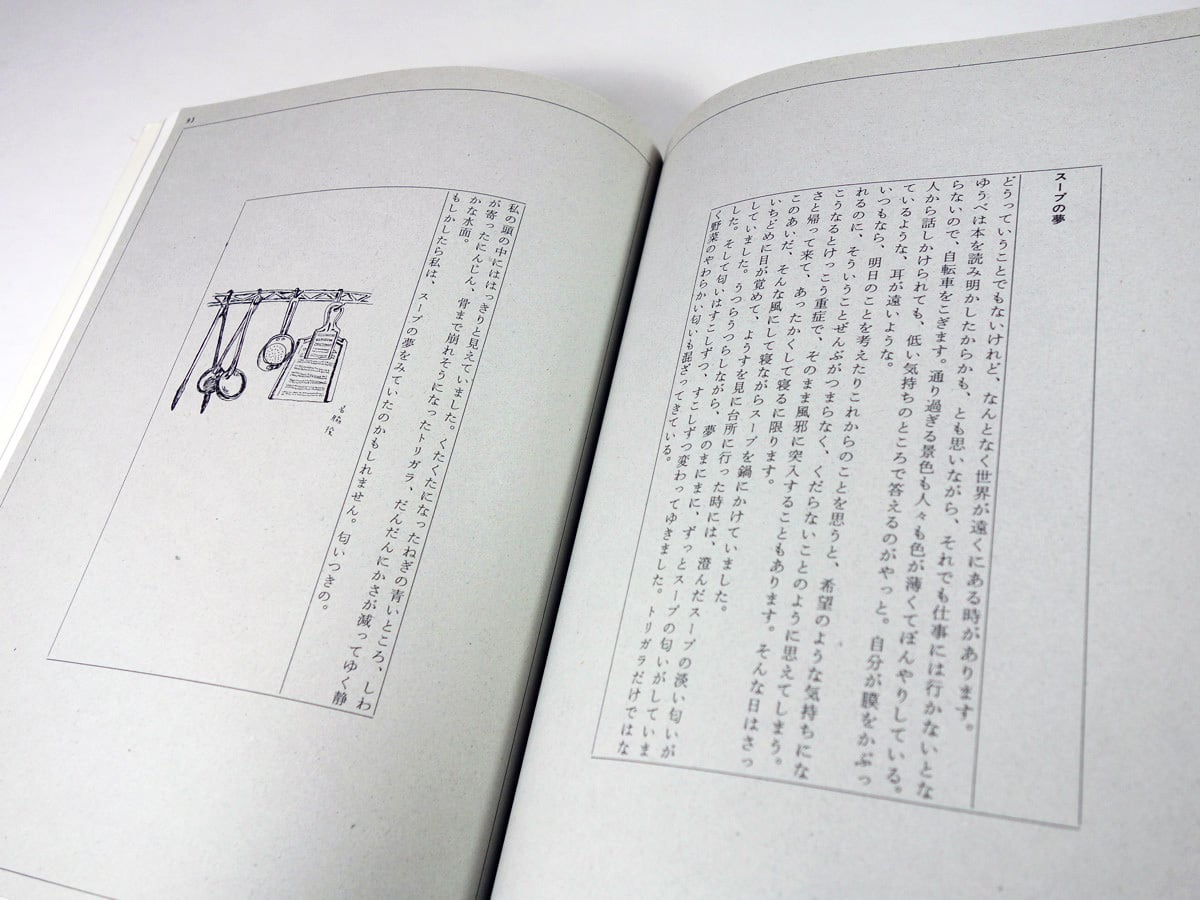 スープの夢
どうっていうことでもないけれど、なんとなく世界が遠くにある時があります。
ゆうべは本を読み明かしたからかも、とも思いながら、それでも仕事には行かないとな
らないので、自転車をこぎます。通り過ぎる景色も人々も色が薄くてぼんやりしている。
人から話しかけられても、低い気持ちのところで答えるのがやっと。自分が膜をかぶっ
ているような、耳が遠いような。
いつもなら、明日のことを考えたりこれからのことを思うと、希望のような気持ちにな
れるのに、そういうことぜんぶがつまらなく、くだらないことのように思えてしまう。
こうなるとけっこう重症で、そのまま風邪に突入することもあります。そんな日はさっ
さと帰って来て、あったかくして寝るに限ります。
このあいだ、そんな風にして寝ながらスープを鍋にかけていました。
いちどめに目が覚めて、ようすを見に台所に行った時には、澄んだスープの淡い匂いが
していました。うつらうつらしながら、夢のまにまに、ずっとスープの匂いがしていま
した。そして匂いはすこしずつ、すこしずつ変わってゆきました。トリガラだけではな
く野菜のやわらかい匂いも混ざってきている。
私の頭の中にははっきりと見えていました。くたくたになったねぎの青いところ、しわ
が寄ったにんじん、骨まで崩れそうになったトリガラ、だんだんにかさが減ってゆく静
かな水面。
もしかしたら私は、スープの夢をみていたのかもしれません。匂いつきの。